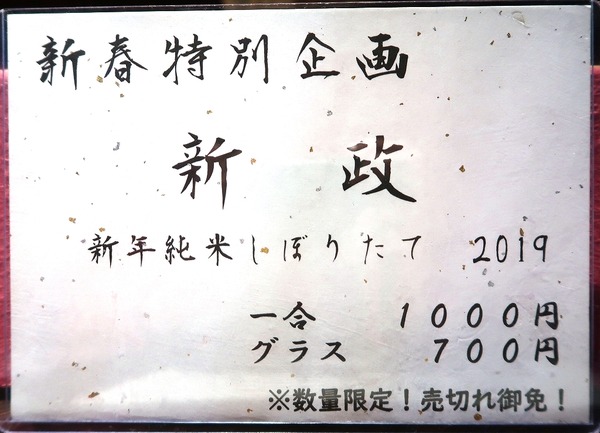 新春特別企画
新 政
新年純米しぼりたて 2019
一合 1000円
グラス 700円
※数量限定！売切れ御免！